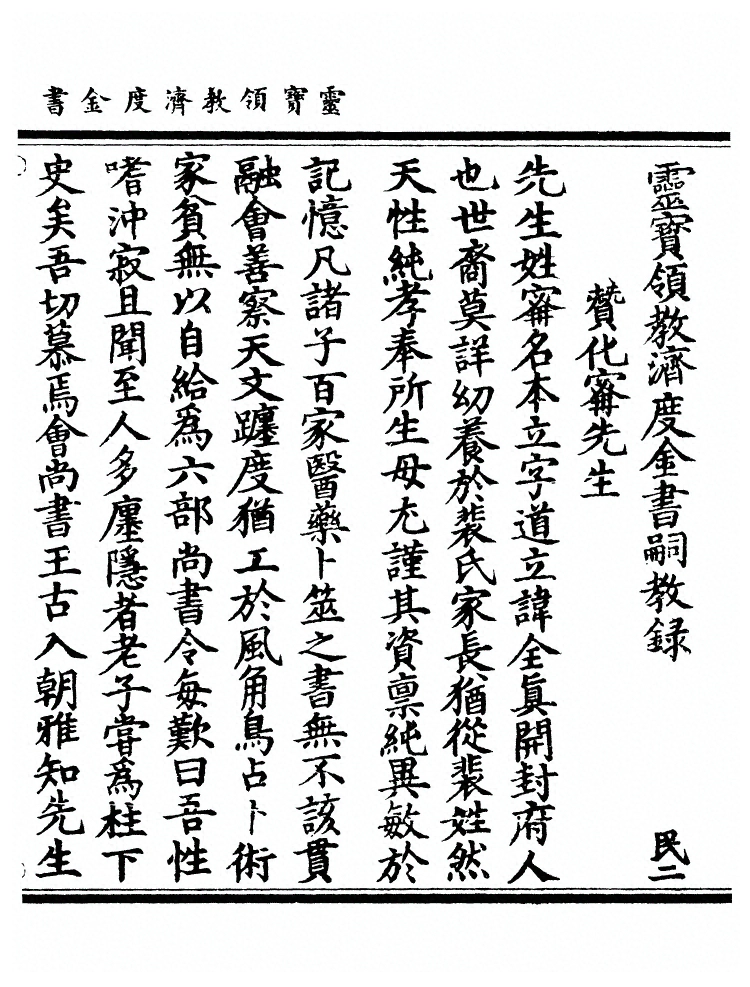 靈寶領教濟度金書
靈寶領教濟度金書嗣教録
民二
贊化甯先生
先生姓甯名本立字道立諱全真開封府人
也世裔莫詳幼養於裴氏家長猶從裴姓然
天性純孝奉所生母尤謹其資禀純異敏於
記憶凡諸子百家醫藥卜筮之書無不該貫
融會善察天文躔度猶工於風角鳥占卜術
家貧無以自給爲六部尚書令每歎曰吾性
嗜沖寂且聞至人多廛隱者老子嘗爲柱下
史矣吾切慕焉會尚書王古入朝雅知先生